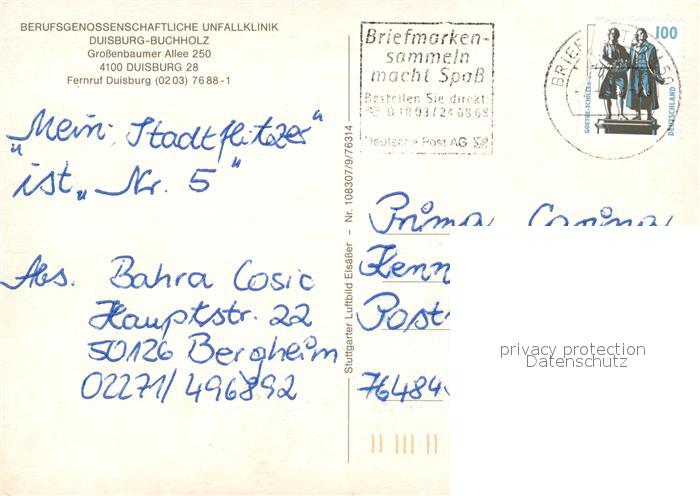 BERUFSGENOSSENSCHAFTLICHE UNFALLKLINIK
DUISBURG-BUCHHOLZ
Großenbaumer Allee 250
4100 DUISBURG 28
Fernruf Duisburg (02 03) 76 88 - 1
Briefmarken-
sammeln
macht Spaß
Bestellen Sie direkt:
Deutsche Post AG
BRIEF
100
GOETHE-SCHILLER
DEUTSCHLAND
„Mein Stadtflitzer"
ist „Nr. 5"
Abs. Bahra Cosic
Hauptstr. 22
50126 Bergheim
02271/496892
Stuttgarter Luftbild Elsäßer – Nr. 108307/9/76314
Prima Carina
Kenn
Post
76484
privacy protection
Datenschutz